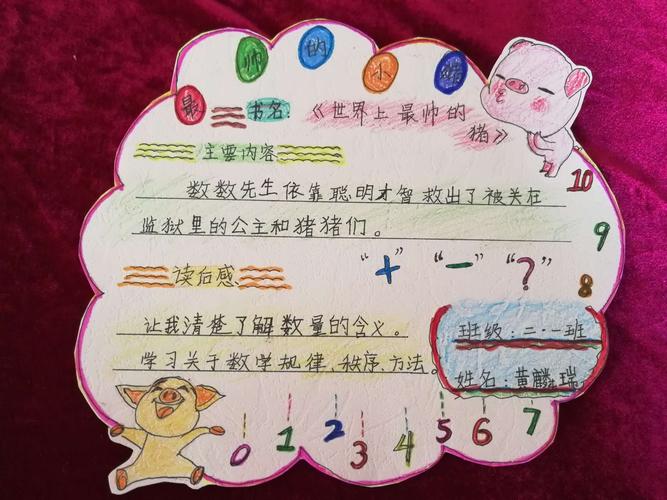 最帅的小猪
书名：《世界上最帅的
猪》
主要内容
数数先生依靠聪明才智救出了被关在
监狱里的公主和猪猪们。
读后感
"+" "-" "?"
让我清楚了解数量的含义。
学习关于数学规律、秩序、方法。
班级：二·一班
姓名：黄麟瑞
0 1 2 3 4 5 6 7 8 9 10